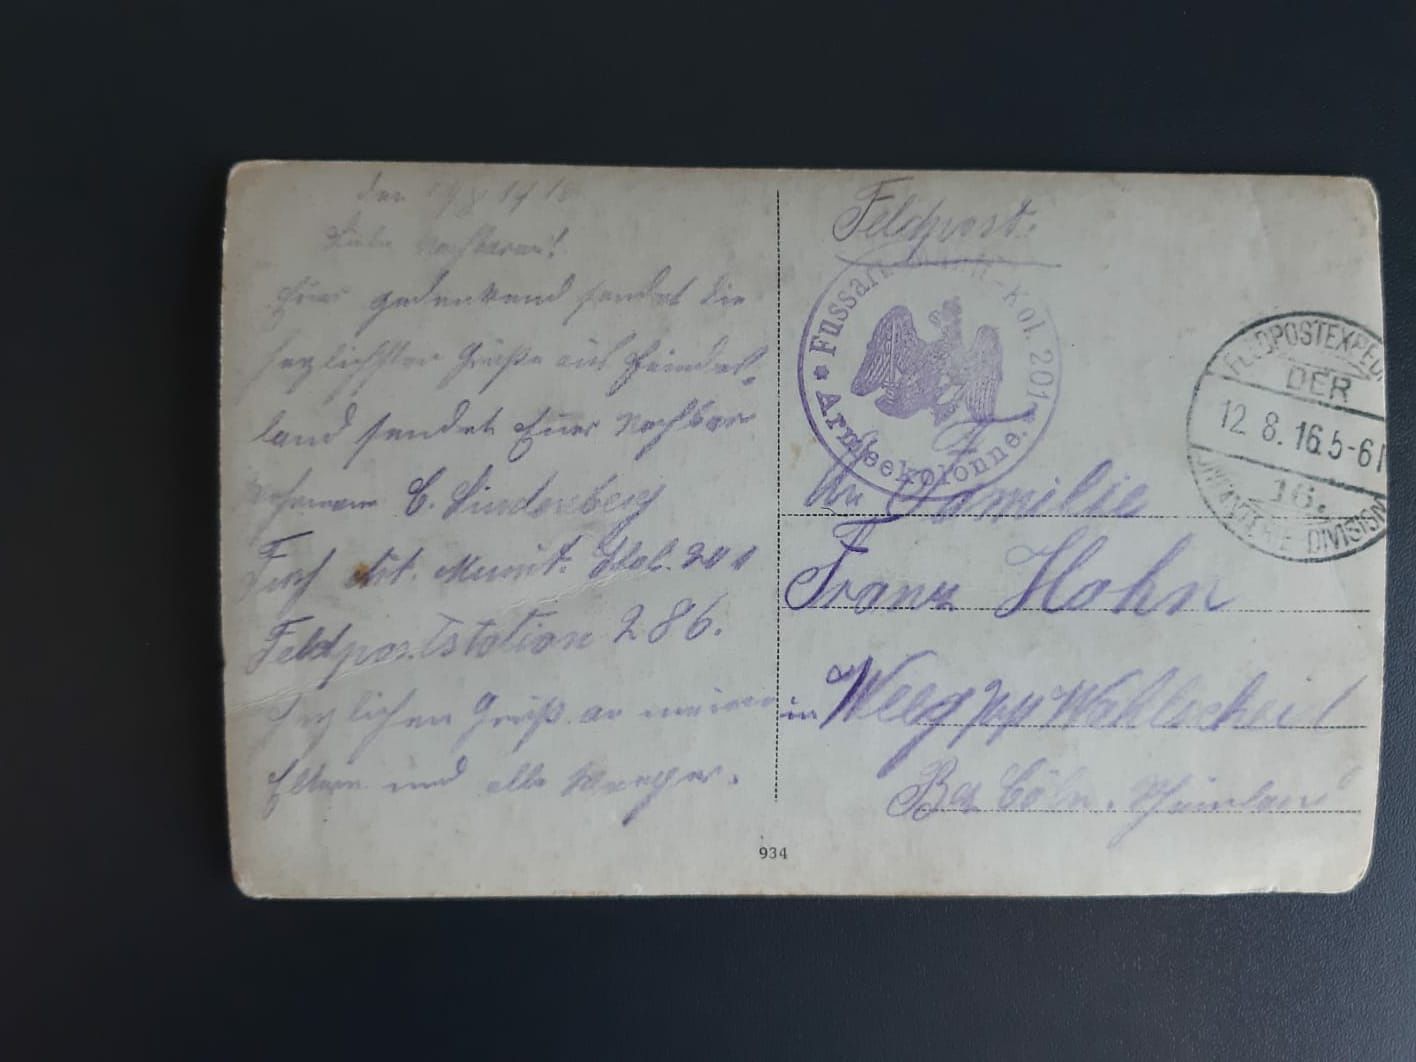 den 1916
Liebe Nachbaren!
Euer gedenkend sendet die
herzlichsten Grüße aus Feindes-
land sendet Euer Nachbar
C. Lindenberg
Art. Munit. Kol. 201
Feldpoststation 286.
Herzlichen Gruß an meine
Eltern und alle
Feldpost.
* Fussart. -Kol. 201 *
Armeekolonne.
FELDPOSTEXPED
DER
12.8.16.5-6
16.
INFANTERIE DIVISION
An Familie
Franz Hahn
in Wahlscheid
Bez Cöln. Rheinland
934